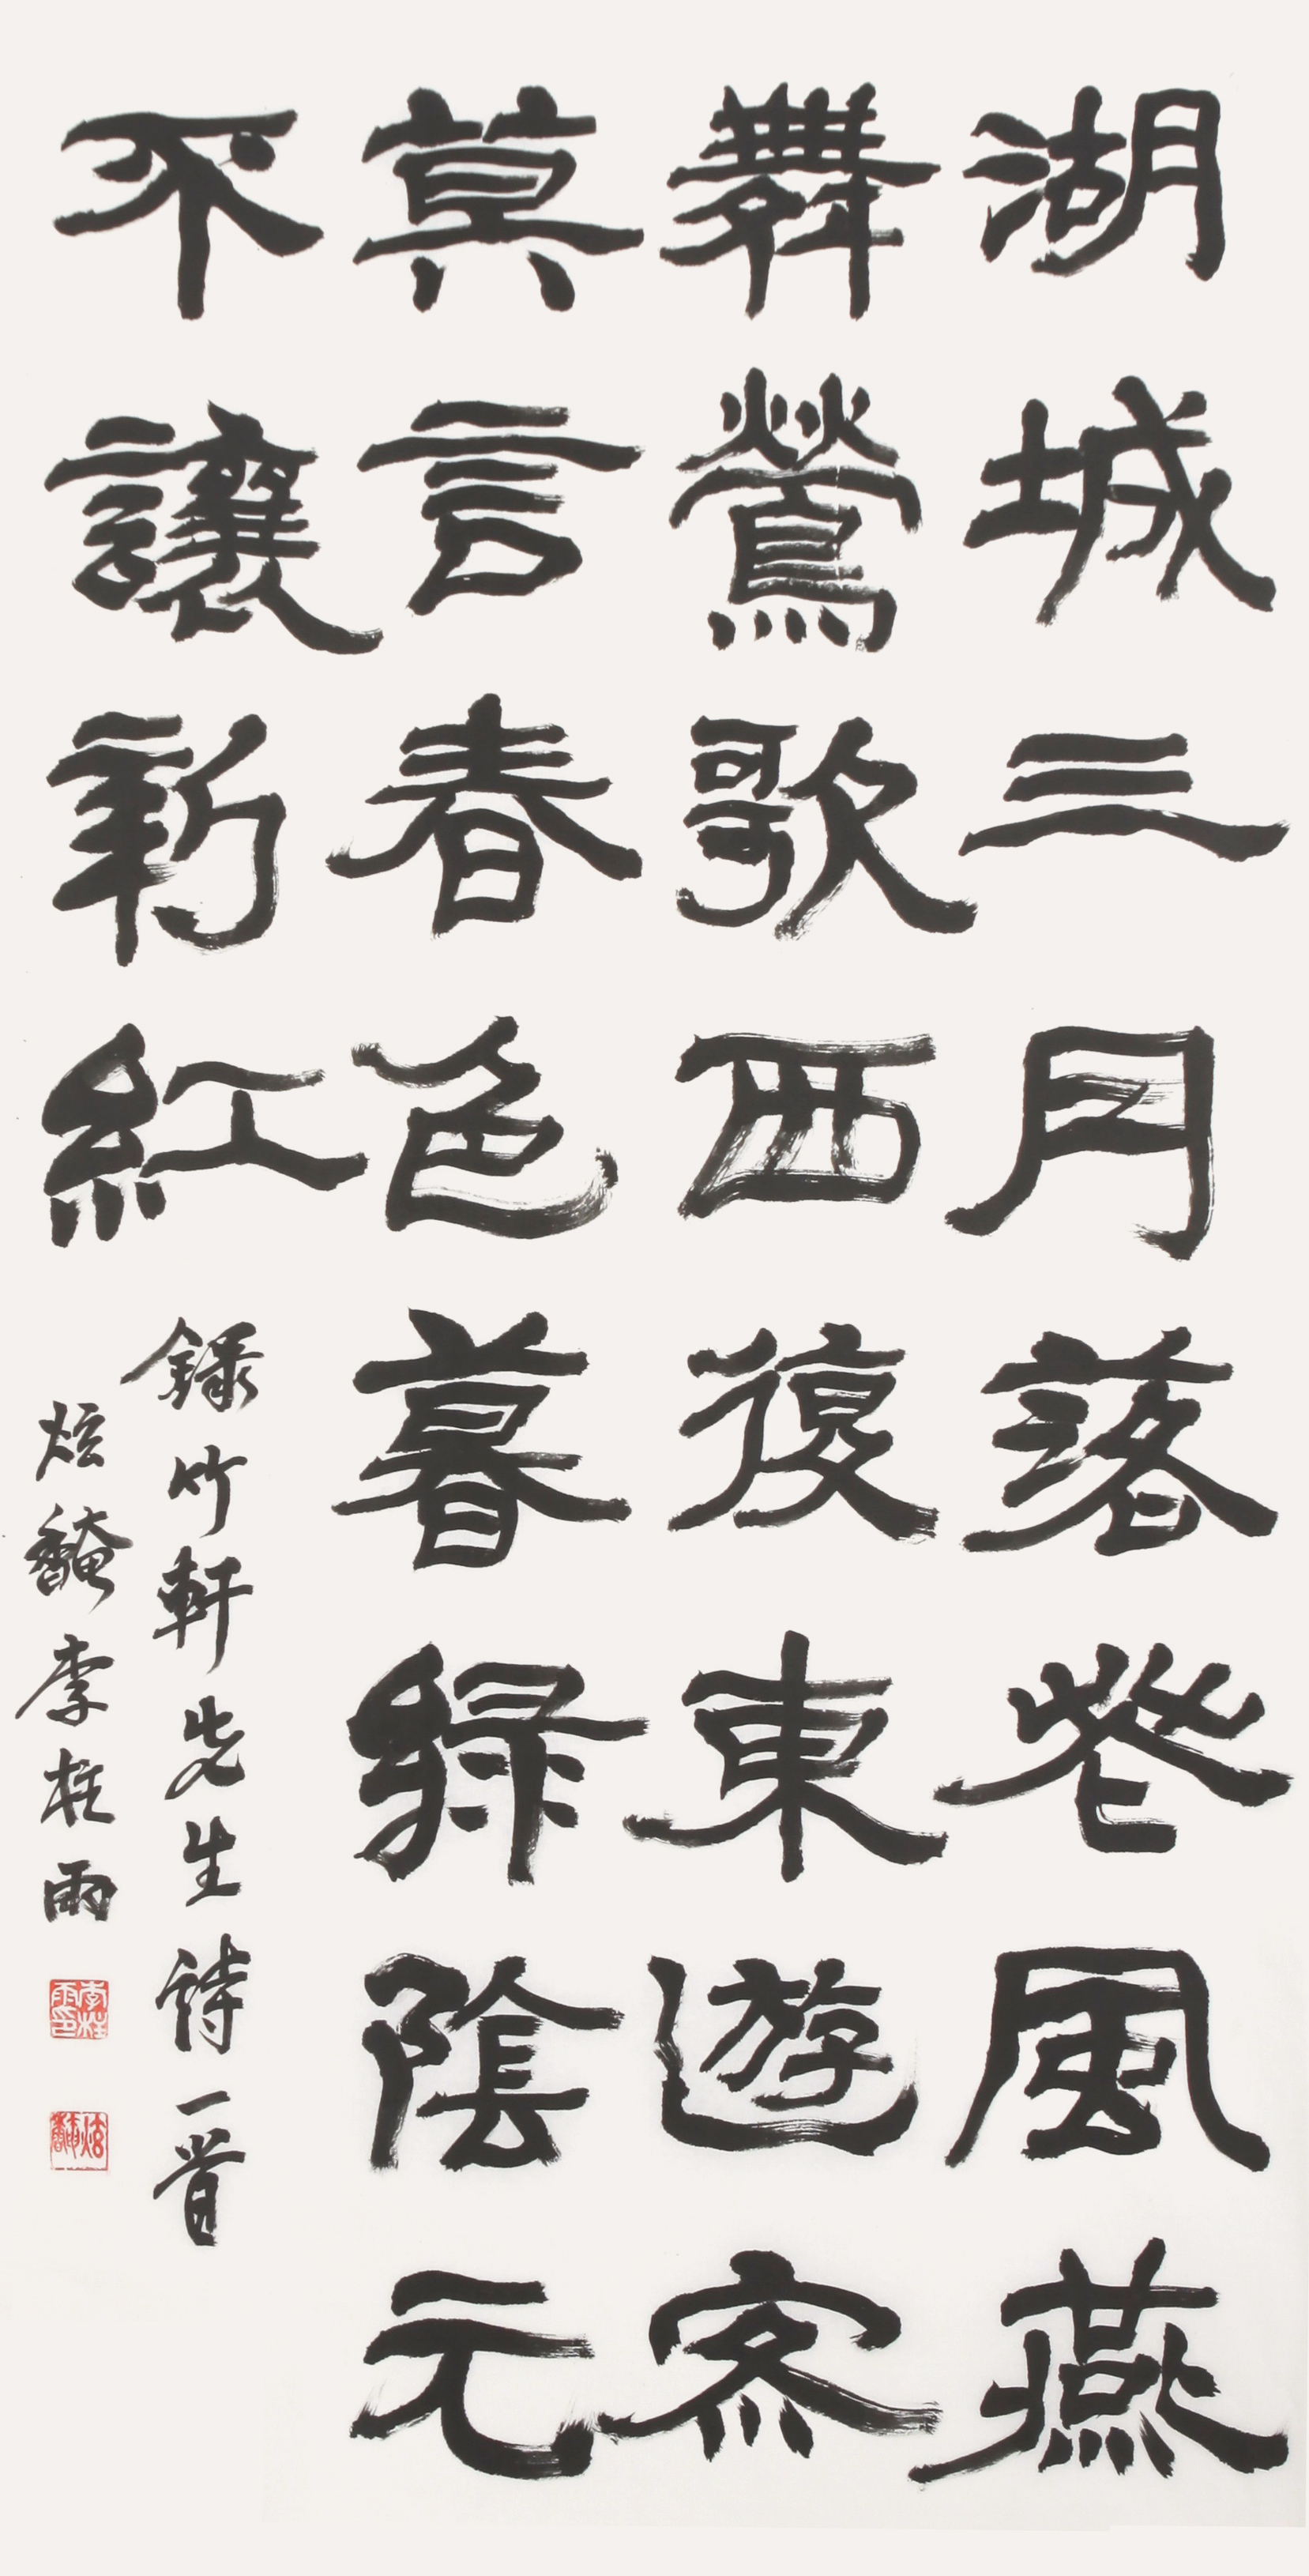 湖城三月落花風燕
舞鶯歌西復東遊客
莫言春色暮綠陰元
不讓新紅
錄竹軒先生詩一首
炫馣李柱雨
李柱雨印
炫馣